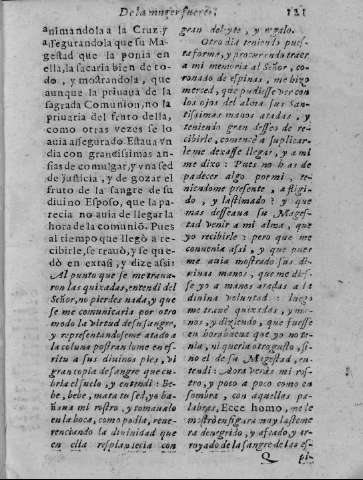 De la muger fuerte. 121
animandola a la Cruz, y
assegurandola que su Ma-
gestad que la ponia en
ella, la sacaria bien de to-
do, y mostrandola, que
aunque la priuaua de la
sagrada Comunion, no la
priuaria del fruto della,
como otras vezes se lo
auia assegurado. Estaua vn
dia con grandissimas an-
sias de comulgar, y vna sed
de justicia, y de gozar el
fruto de la sangre de su
diuino Esposo, que la pa-
recia no auia de llegar la
hora de la comunió. Pues
al tiempo que llegò a re-
cibirle, se trauò, y se que-
dò en extasi, y dize assi:
Al punto que se me traua-
ron las quixadas, entendi del
Señor, no pierdes nada, y que
se me comunicaria por otro
modo la virtud de su sangre,
y representandoseme atado a
la coluna postrarõme en es-
ritu a sus diuinos pies, vi
gran copia de sangre que cu-
bria el suelo, y entendi: Be-
be, bebe, mata tu sed, yo ba-
ñaua mi rostro, y tomaualo
en la boca, como podia, reue-
renciando la diuinidad que
en ella resplandecia con
gran deleyte, y regalo.
Otro dia teniendo pues-
ta forma, y procurando traer
a mi memoria al Señor, co-
ronado de espinas, me hizo
merced, que pudiesse ver con
los ojos del alma sus San-
tissimas manos atadas, y
teniendo gran desseo de re-
cibirle, comencè a suplicar-
le me dexasse llegar, y a mi
me dixo: Pues no has de
padecer algo por mi, te-
niendome presente, afligi-
do, y lastimado? y que
mas desseaua su Mages-
tad venir a mi alma, que
yo recibirle: pero que me
conuenia assi, y que pues
me auia mostrado sus di-
uinas manos, que me dies-
se yo a manos atadas a la
diuina voluntad: luego
me trauè quixadas, y ma-
nos, y diziendo, que fuesse
en hora buena que yo no te-
nia, ni queria otro gusto, si-
no el de su Magestad, en-
tendi: Aora veràs mi ros-
tro, y poco a poco como en
sombra, con aquellas pa-
labras, Ecce homo, me le
mostrò en figura muy lastime
ra denegrido, y afeado, y ar-
royado de la sangre de las es-
Q pi-